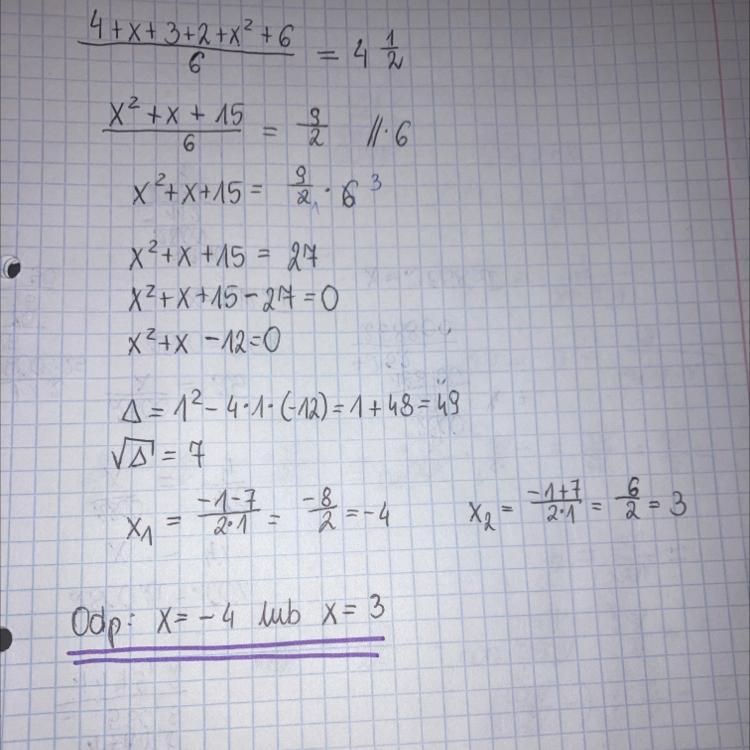 (4+x+3+2+x²+6)/6 = 4 1/2
(x²+x+15)/6 = 9/2 //·6
x²+x+15 = 9/2₁ · 6 ³
x²+x+15 = 27
x²+x+15-27=0
x²+x -12=0
Δ = 1² - 4·1·(-12) = 1+48 = 49
√Δ = 7
x₁ = (-1-7)/(2·1) = -8/2 = -4 x₂ = (-1+7)/(2·1) = 6/2 = 3
Odp: x = -4 lub x = 3